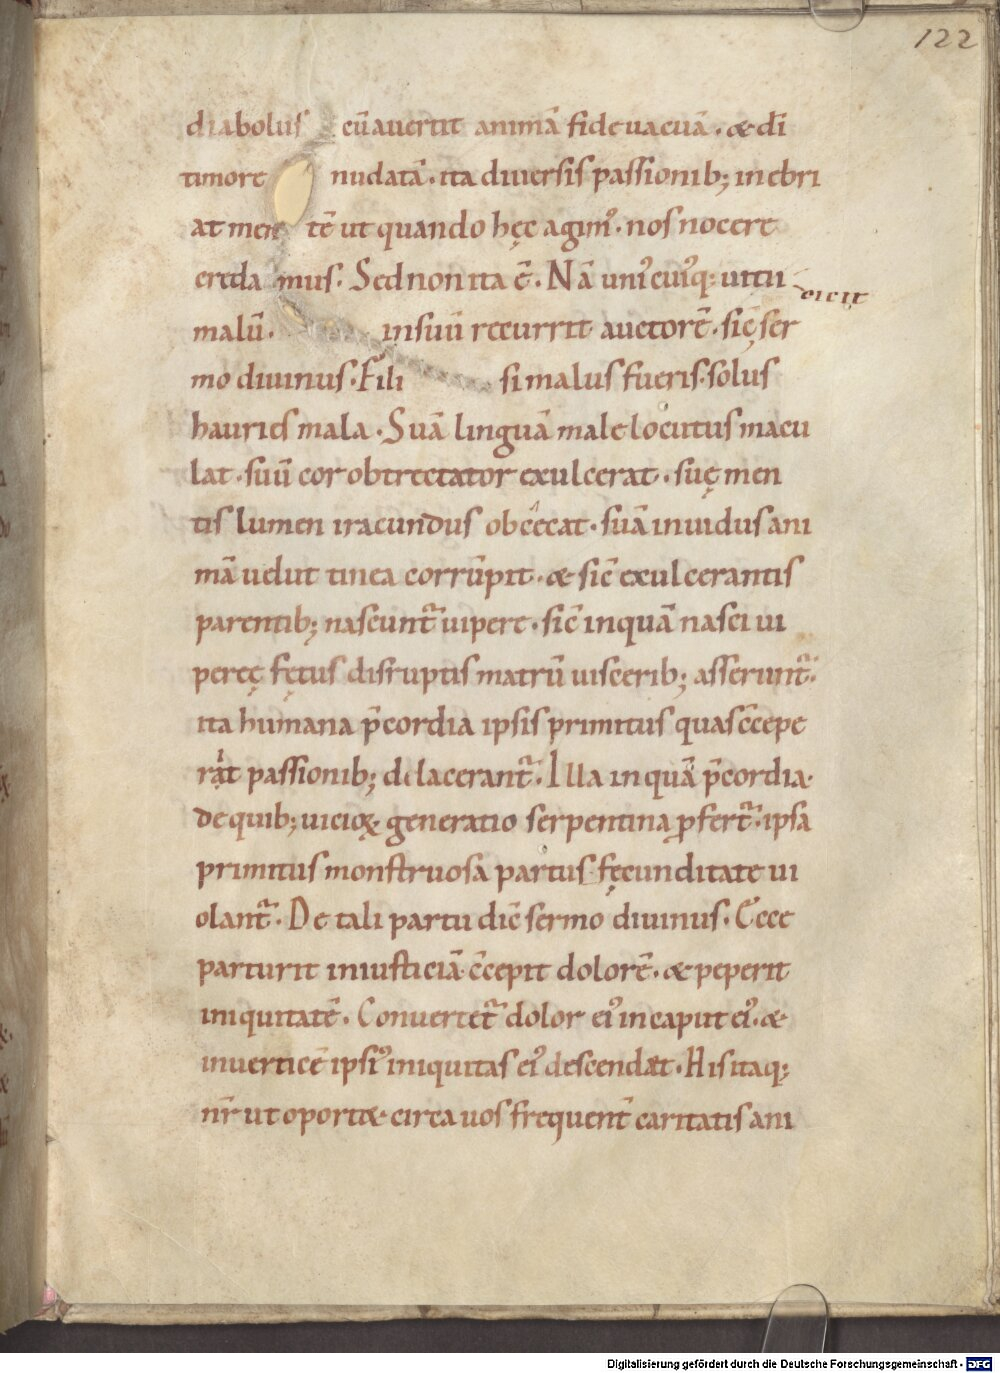 122
diabolus cū auertit animā fide uacuā · & dī
timore nudatā · ita diuersis passionib; inebri
at men tē ut quando hęc agim᷒ · nos nocere
creda mus · Sed non ita ē · Nā uni᷒cui᷒q; uitu
malū · in suū recurrit auctorē · sic̄ ser
eicit
mo diuinus · Fili si malus fueris · solus
hauries mala · Suā linguā male locutus macu
lat · suū cor obtrectator exulcerat · suę men
tis lumen iracundus obcęcat · suā inuidus ani
mā uelut tinea corrūpit · & sic̄ exulcerantis
parentib; nascunt᷑ uipere · sic̄ inquā nasci ui
pereę fętus disruptis matrū uiscerib; asserunt᷑ ·
ita humana p̄cordia ipsis primitus quas c̄cepe
rāt passionib; delacerant᷑ · Illa inquā p̄cordia ·
de quib; uicioꝝ generatio serpentina ꝓfert᷑ · ipsa
primitus monstruosa partus fęcunditate ui
olant᷑ · De tali partu dic̄ sermo diuinus · Ecce
parturit iniusticiā c̄cepit dolorē · & peperit
iniquitatē · Conuertet᷑ dolor ei᷒ in caput ei᷒ · &
in uerticē ipsi᷒ iniquitas ei᷒ descendat · His itaq;
nr̄ ut oport& circa uos frequent̄ caritatis ani
Digitalisierung gefördert durch die Deutsche Forschungsgemeinschaft - DFG